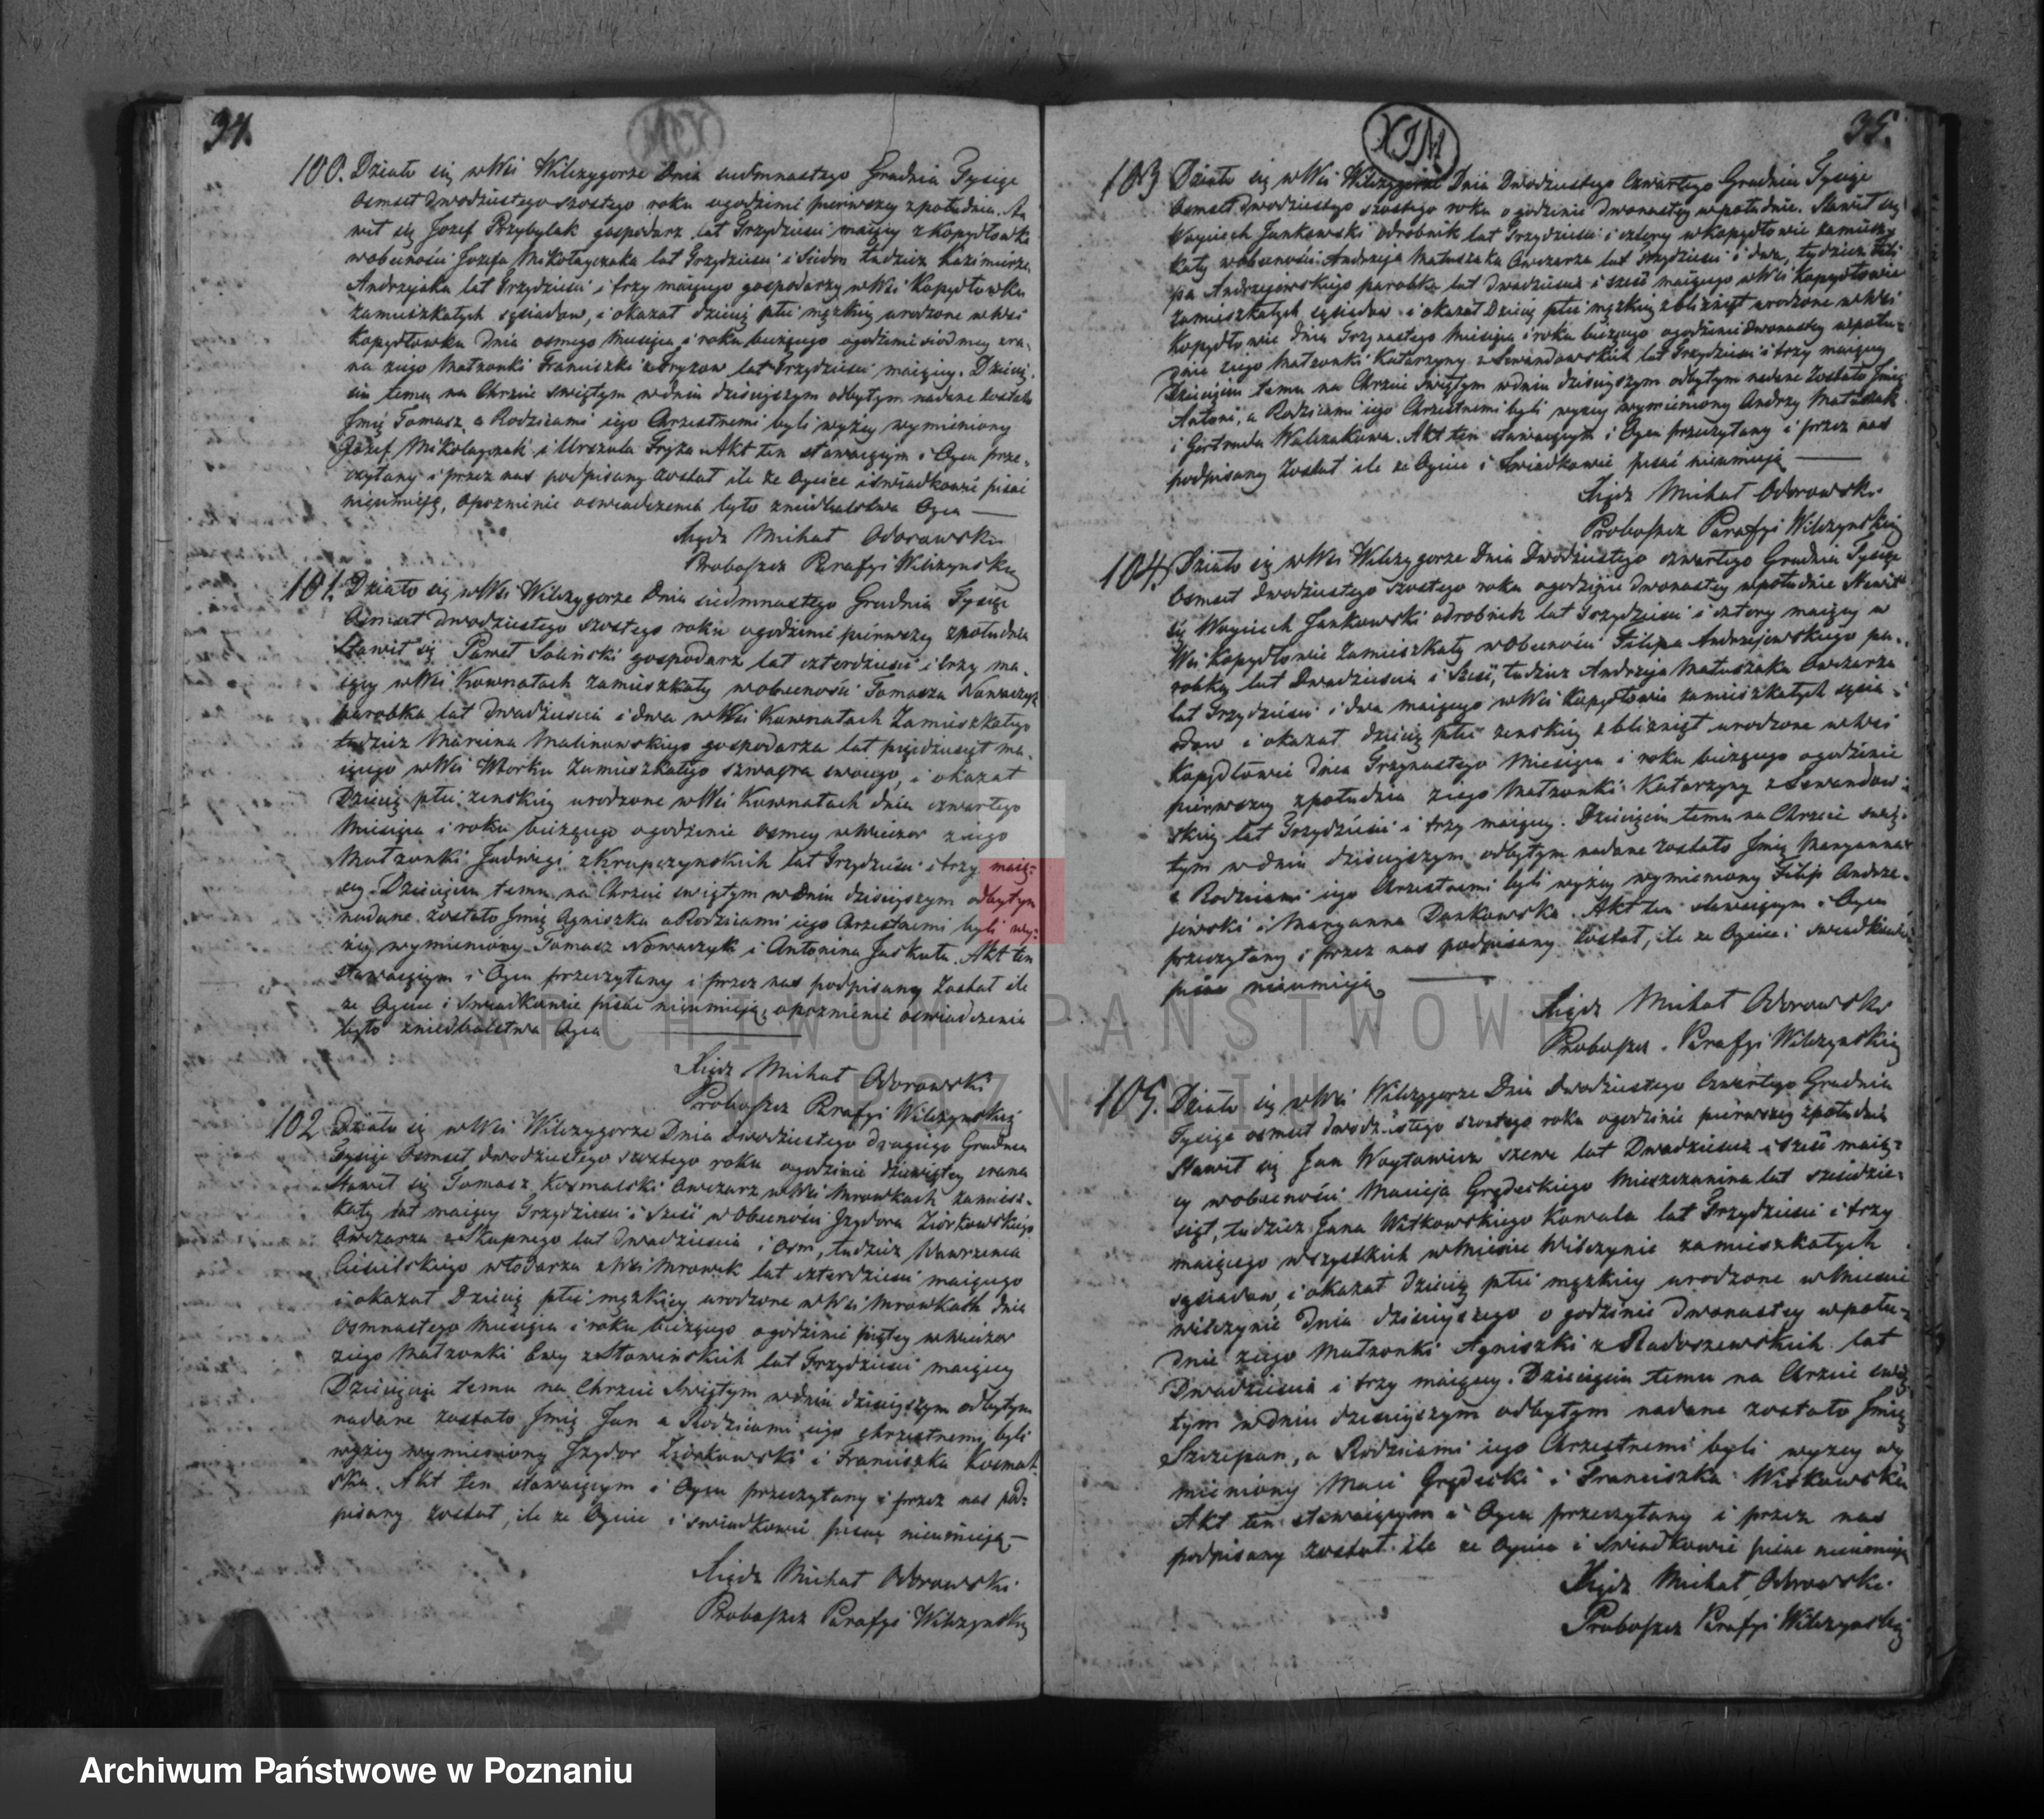 34.
100. Działo się w Wsi Wilczygorze Dnia siedmnastego Grudnia Tysiąc
osmset Dwudziestego szostego roku ogodzinie pierwszey zpołudnia. Sta
wił się Jozef Przybylak gospodarz lat Trzydzieści maiący z Kopydłowka
wobecności Jozefa Mikołayczaka lat Trzydzieści i Siedm tudzież Kazimierza
Andrzejaka lat Trzydzieści i trzy maiącego gospodarzy w Wsi Kopydłowku
zamieszkałych sąsiadow, i okazał dziecię płci męzkiey urodzone w Wsi
Kopydłowku Dnia osmego Miesiąca i roku bieżącego ogodzinie siodmey zra-
na z iego Małżonki Franciszki z Fryzow lat Trzydzieści maiącey. Dziecię-
ciu temu na Chrzcie swiętym w dniu dzisieyszym odbytym nadane zostało
Jmię Tomasz, a Rodzicami iego Chrzestnemi byli wyżey wymieniony
Jozef Mikołayczak i Urszula Fryza Akt ten stawaiącym i Oycu prze-
czytany i przez nas podpisany został ile że Oyciec i świadkowie pisać
nieumieią, opoznienie oswiadczenia było z niedbalstwa Oyca
Xiądz Michał Odorowski
Proboszcz Parafyi Wilczynskiey
101. Działo się w Wsi Wilczygorze Dnia siedmnastego Grudnia Tysiąc
Osmset Dwudziestego szostego roku ogodzinie pierwszey zpołudnia
Stawił się Paweł Soliński gospodarz lat czterdzieści i trzy ma-
iący w Wsi Kownatach zamieszkały wobecności Tomasza Nowaczyk
parobka lat Dwadzieścia i dwa w Wsi Kownatach Zamieszkałego
tudzież Marcina Malinowskiego gospodarza lat pięćdziesiąt ma-
iącego w Wsi Wtorku Zamieszkałego szwagra swoiego, i okazał
Dziecię płci żenskiey urodzone w Wsi Kownatach dnia czwartego
Miesiąca i roku bieżącego ogodzinie osmey wwieczor z iego
Małżonki Jadwigi z Krupczynskich lat Trzydzieści i trzy maią-
cey. Dziecięciu temu na Chrzcie swiętym w Dniu dzisieyszym odbytym
nadane zostało Jmię Agniszka a Rodzicami iego Chrzestnemi byli wy-
żey wymieniony Tomasz Nowaczyk i Antonina Jaskuła. Akt ten
stawaiącym i Oycu przeczytany i przez nas podpisany Został ile
że Oyciec i Swiadkowie pisać nieumieią, opoznienie oswiadczenia
było z niedbalstwa Oyca
Xiądz Michał Odorowski
Proboszcz Parafyi Wilczynskiey
102 Działo się w Wsi Wilczygorze Dnia Dwudziestego drugiego Grudnia
Tysiąc Osmset dwudziestego szostego roku ogodzinie dziewiątey zrana
Stawił się Tomasz Kosmalski Owczarz w Wsi Mrowkach zamiesz-
kały lat maiący Trzydzieści i Sześć w Obecności Jzydora Ziorkowskiego
Owczarza z Skupnego lat Dwadzieścia i Osm, tudzież Wawrzenca
Cieśielskiego włodarza z Wsi Mrowek lat czterdzieści maiącego
i okazał Dziecię płci męzkiey urodzone w Wsi Mrowkach dnia
Osmnastego Miesiąca i roku bieżącego ogodzinie piątey wwieczor
z iego Małżonki Ewy z Stawińskich lat Trzydzieści maiącey
Dziecięciu temu na Chrzcie Swiętym w dniu dzisieyszym odbytym
nadane zostało Jmię Jan a Rodzicami iego chrzestnemi byli
wyżey wymieniony Jzydor Ziorkowski i Franciszka Kosmal-
ska. Akt ten stawaiącym i Oycu przeczytany i przez nas pod-
pisany został, ile że Oyciec i swiadkowie pisać nieumieią
Xiądz Michał Odorowski
Proboszcz Parafyi Wilczynskiey
XIM
35.
103 Działo się w Wsi Wilczygorze Dnia Dwudziestego Czwartego Grudnia Tysiąc
Osmset Dwudziestego szostego roku o godzinie Dwunastey wpołudnie. Stawił się
Woyciech Jankowski Odrobnik lat Trzydzieści i cztery w Kopydłowie zamiesz-
kały wobecności Andrzeja Matuszaka Owczarza lat trzydzieści i dwa, tudzież Fili
pa Andrzejewskiego parobka lat Dwadzieścia i sześć maiącego w Wsi Kopydłowie
zamieszkałych sąsiadow i okazał Dziecię płci męzkiey z bliźniąt urodzone w Wsi
Kopydłowie dnia Trzynastego Miesiąca i roku bieżącego ogodzinie Dwunastey wpołu-
dnie z iego Małżonki Katarzyny z Lewandowskich lat Trzydzieści i trzy maiącey
Dziecięciu temu na Chrzcie Swiętym w dniu dzisieyszym odbytym nadane Zostało Jmię
Antoni, a Rodzicami iego Chrzestnemi byli wyżey wymieniony Andrzy Matuszak
i Gertruda Walczakowa. Akt ten stawaiącym i Oycu przeczytany i przez nas
podpisany Został ile że Oyciec i Swiadkowie pisać nieumieią
Xiądz Michał Odorowski
Proboszcz Parafyi Wilczynskiey
104. Działo się w Wsi Wilczygorze Dnia Dwudziestego czwartego Grudnia Tysiąc
Osmset dwudziestego szostego roku ogodzinie Dwunastey wpołudnie Stawił
się Woyciech Jankowski odrobnik lat Trzydzieści i cztery maiący w
Wsi Kopydłowie Zamieszkały wobecności Filipa Andrzejewskiego pa-
robka lat Dwadzieścia i Sześć, tudzież Andrzeja Matuszaka Owczarza
lat Trzydzieści i dwa maiącego w Wsi Kopydłowie zamieszkałych sąsia-
dow i okazał dziecię płci żenskiey z bliźniąt urodzone w Wsi
Kopydłowie dnia Trzynastego Miesiąca i roku bieżącego ogodzinie
pierwszey zpołudnia z iego Małżonki Katarzyny z Lewandow-
skiey lat Trzydzieści i trzy maiącey. Dziecięciu temu na Chrzcie swię-
tym w dniu dzisieyszym odbytym nadane zostało Jmię Maryanna
a Rodzicami iego Chrzestnemi byli wyżey wymieniony Filip Andrze-
jewski i Maryanna Dankowska. Akt ten stawaiącym i Oycu
przeczytany i przez nas podpisany został, ile że Oyciec i swiadkowie
pisać nieumieią
Xiądz Michał Odorowski
Proboszcz Parafyi Wilczynskiey
105. Działo się w Wsi Wilczygorze Dnia dwudziestego Czwartego Grudnia
Tysiąc osmset dwudziestego szostego roku ogodzinie pierwszey zpołudnia
Stawił się Jan Woytowicz szewc lat Dwadzieścia i sześć maią-
cy wobecności Macieja Grędeckiego Mieszczanina lat sześćdzie-
siąt, tudzież Jana Witkowskiego Kowala lat Trzydzieści i trzy
maiącego wszystkich w Mieście Wilczynie zamieszkałych
sąsiadow, i okazał dziecię płci męzkiey urodzone w Mieście
Wilczynie Dnia dzisieyszego o godzinie Dwunastey wpołu-
dnie z iego Małżonki Agniszki z Radoszewskich lat
Dwadzieścia i trzy maiącey. Dziecięciu temu na Chrzcie swię
tym w dniu dzisieyszym odbytym nadane zostało Jmię
Szczepan, a Rodzicami iego Chrzestnemi byli wyżey wy
mieniony Maci Grędecki i Franciszka Witkowska
Akt ten stawaiącym i Oycu przeczytany i przez nas
podpisany został ile że Oyciec i Swiadkowie pisać nieumieią
Xiądz Michał Odorowski
Proboszcz Parafyi Wilczynskiey
ARCHIWUM PAŃSTWOWE
W POZNANIU
Archiwum Państwowe w Poznaniu